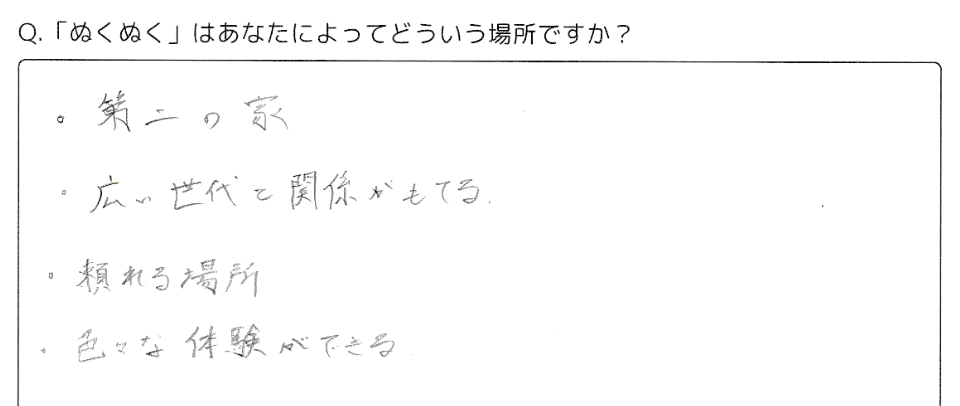 Q.「ぬくぬく」はあなたによってどういう場所ですか？
。第二の家
。広い世代と関係がもてる.
。頼れる場所
・色々な体験ができる